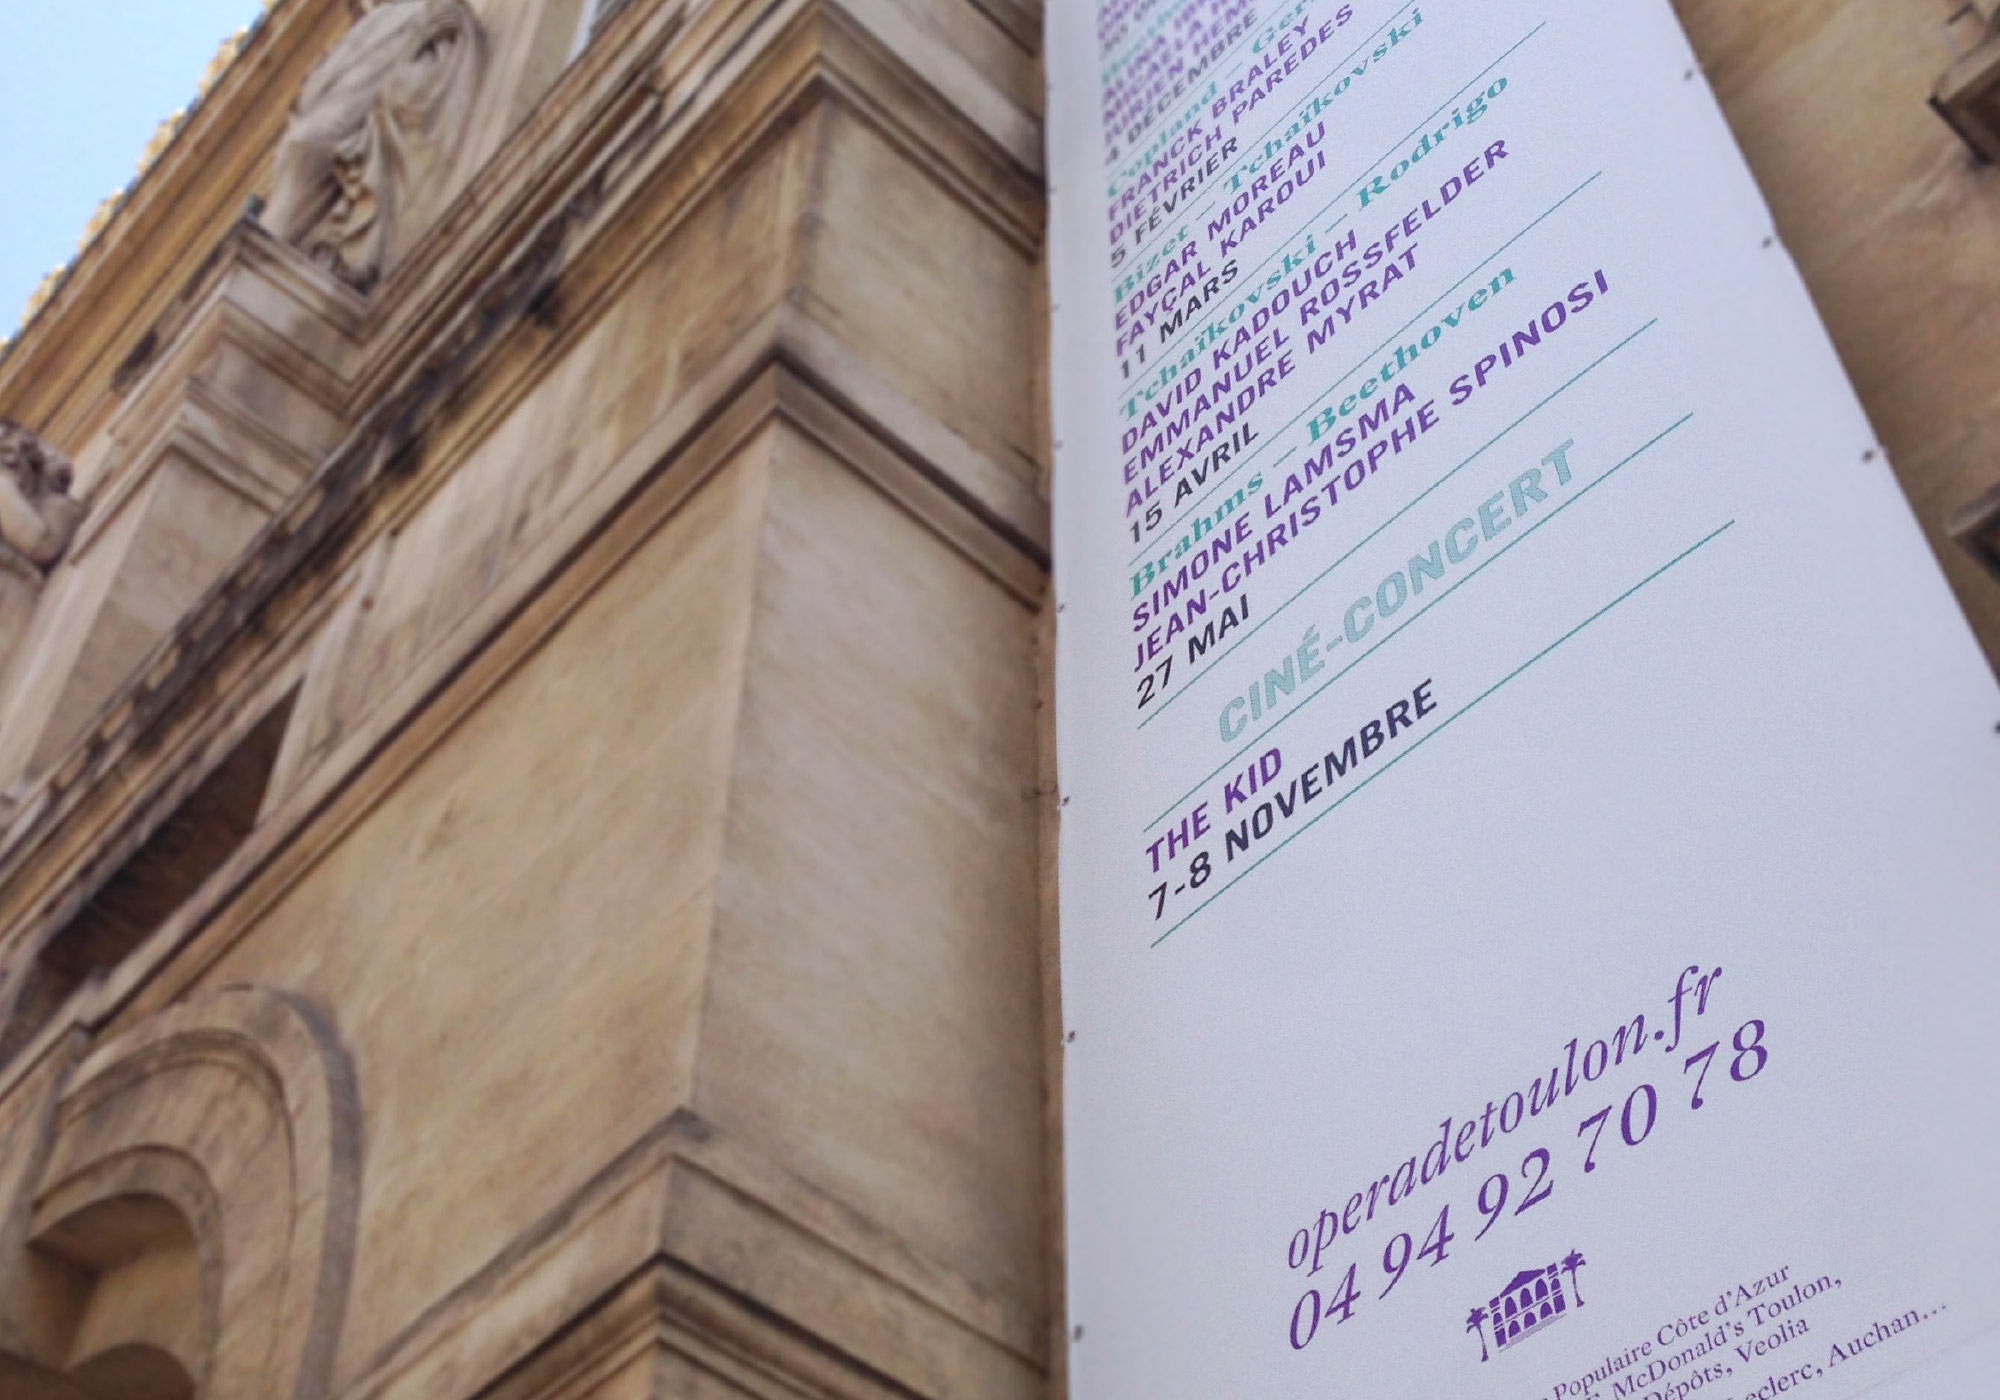 4 DÉCEMBRE
Copland –
FRANCK BRALEY
DIETRICH PAREDES
5 FÉVRIER
Bizet – Tchaïkovski
EDGAR MOREAU
FAYÇAL KAROUI
11 MARS
Tchaïkovski – Rodrigo
DAVID KADOUCH
EMMANUEL ROSSFELDER
ALEXANDRE MYRAT
15 AVRIL
Brahms – Beethoven
SIMONE LAMSMA
JEAN-CHRISTOPHE SPINOSI
27 MAI
CINÉ-CONCERT
THE KID
7-8 NOVEMBRE
operadetoulon.fr
04 94 92 70 78
Populaire Côte d'Azur
McDonald's Toulon,
Dépôts, Veolia
Auchan...